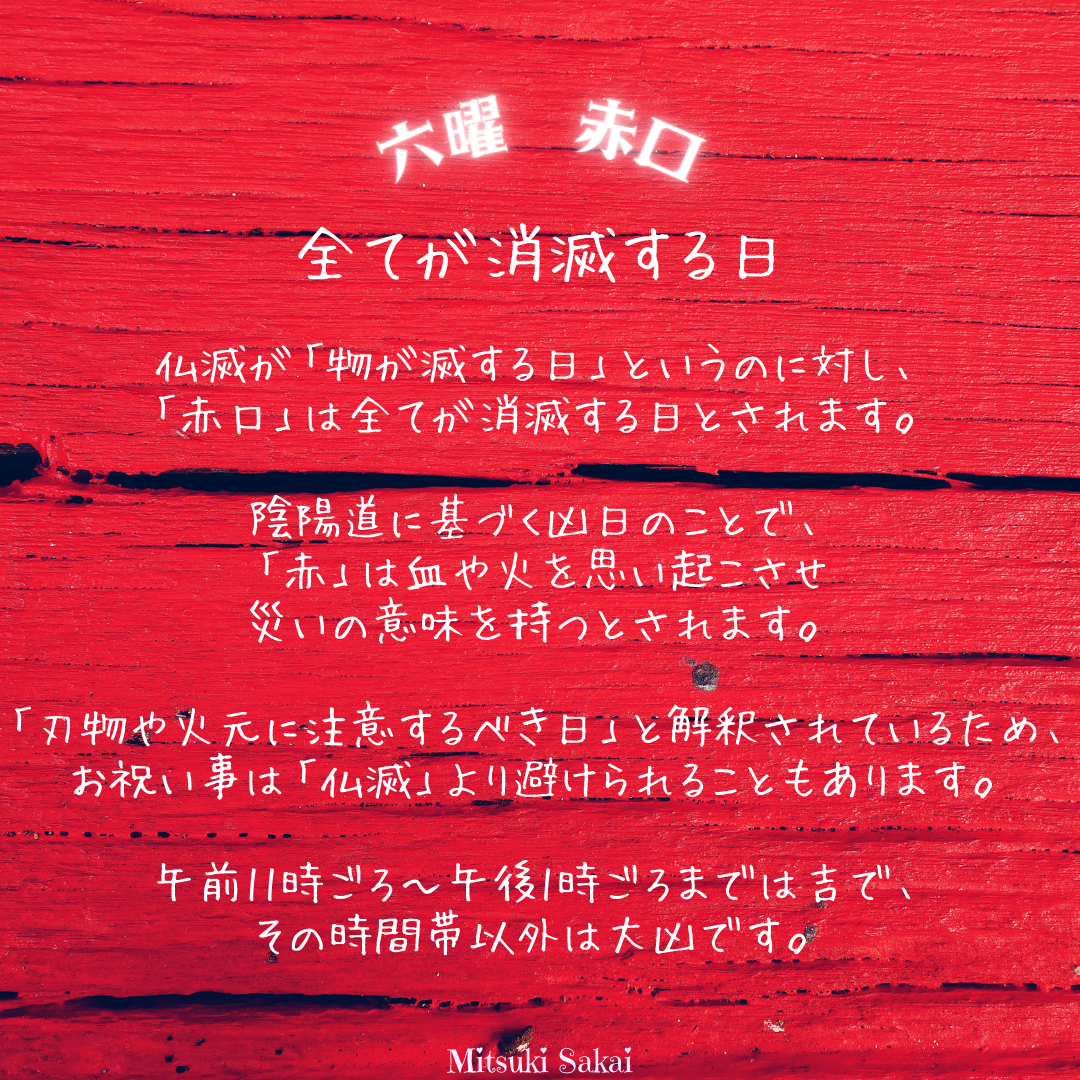 六曜 赤口
全てが消滅する日
仏滅が「物が滅する日」というのに対し、
「赤口」は全てが消滅する日とされます。
陰陽道に基づく凶日のことで、
「赤」は血や火を思い起こさせ
災いの意味を持つとされます。
「刃物や火元に注意するべき日」と解釈されているため、
お祝い事は「仏滅」より避けられることもあります。
午前11時ごろ～午後1時ごろまでは吉で、
その時間帯以外は大凶です。
Mitsuki Sakai